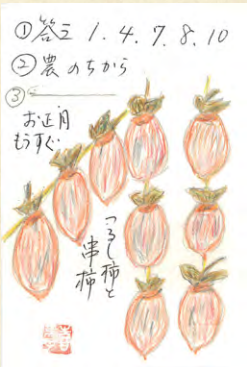 ①答え 1.4.7.8.10
②農のちから
③
お正月
もうすぐ
つるし柿と
串柿